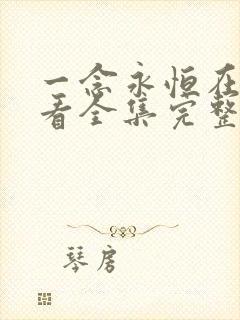 一念永恒在
看全集完整
琴房